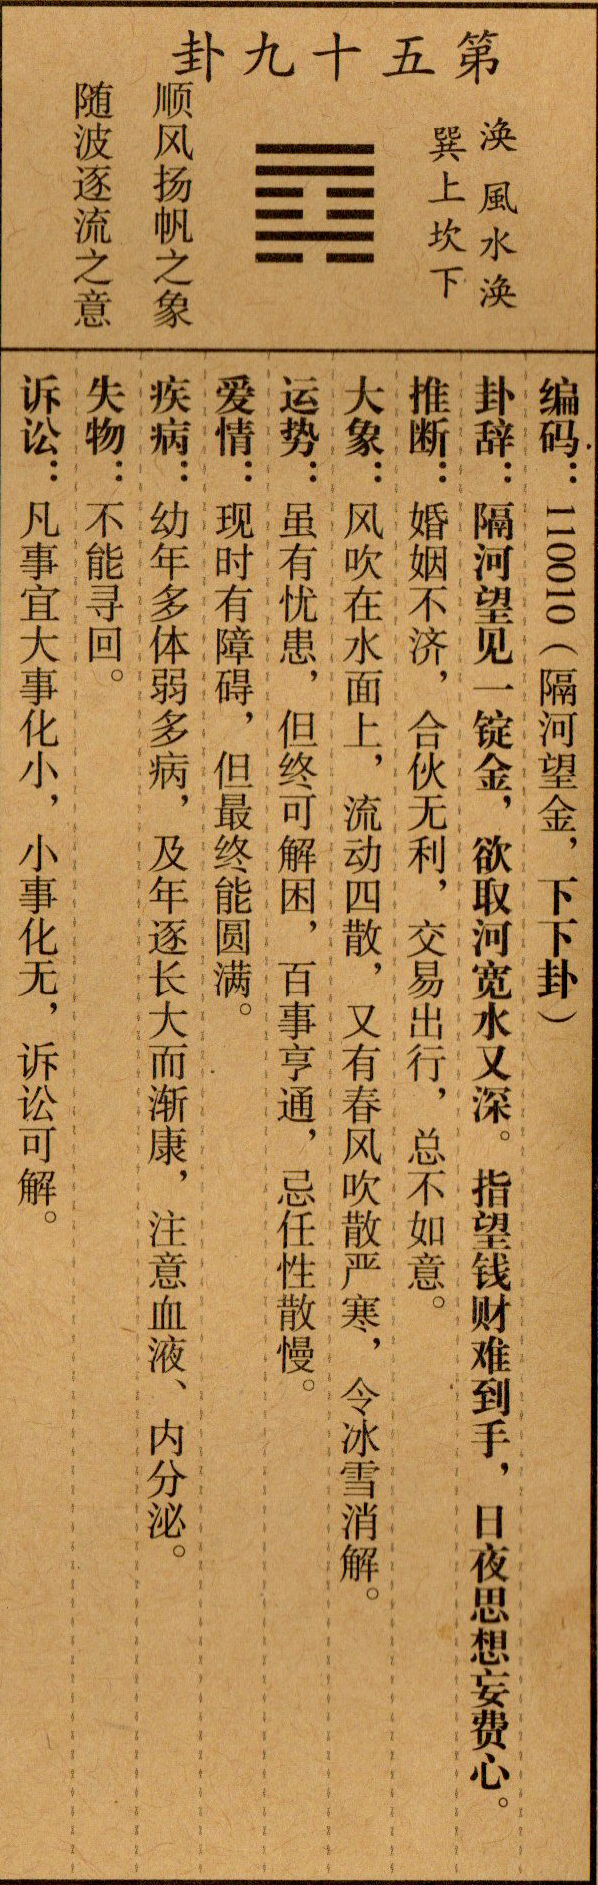 第五十九卦
涣 風水涣
巽上坎下
顺风扬帆之象
随波逐流之意
编码：110010（隔河望金，下下卦）
卦辞：隔河望见一锭金，欲取河宽水又深。指望钱财难到手，日夜思想妄费心。
推断：婚姻不济，合伙无利，交易出行，总不如意。
大象：风吹在水面上，流动四散，又有春风吹散严寒，令冰雪消解。
运势：虽有忧患，但终可解困，百事亨通，忌任性散慢。
爱情：现时有障碍，但最终能圆满。
疾病：幼年多体弱多病，及年逐长大而渐康，注意血液、内分泌。
失物：不能寻回。
诉讼：凡事宜大事化小，小事化无，诉讼可解。